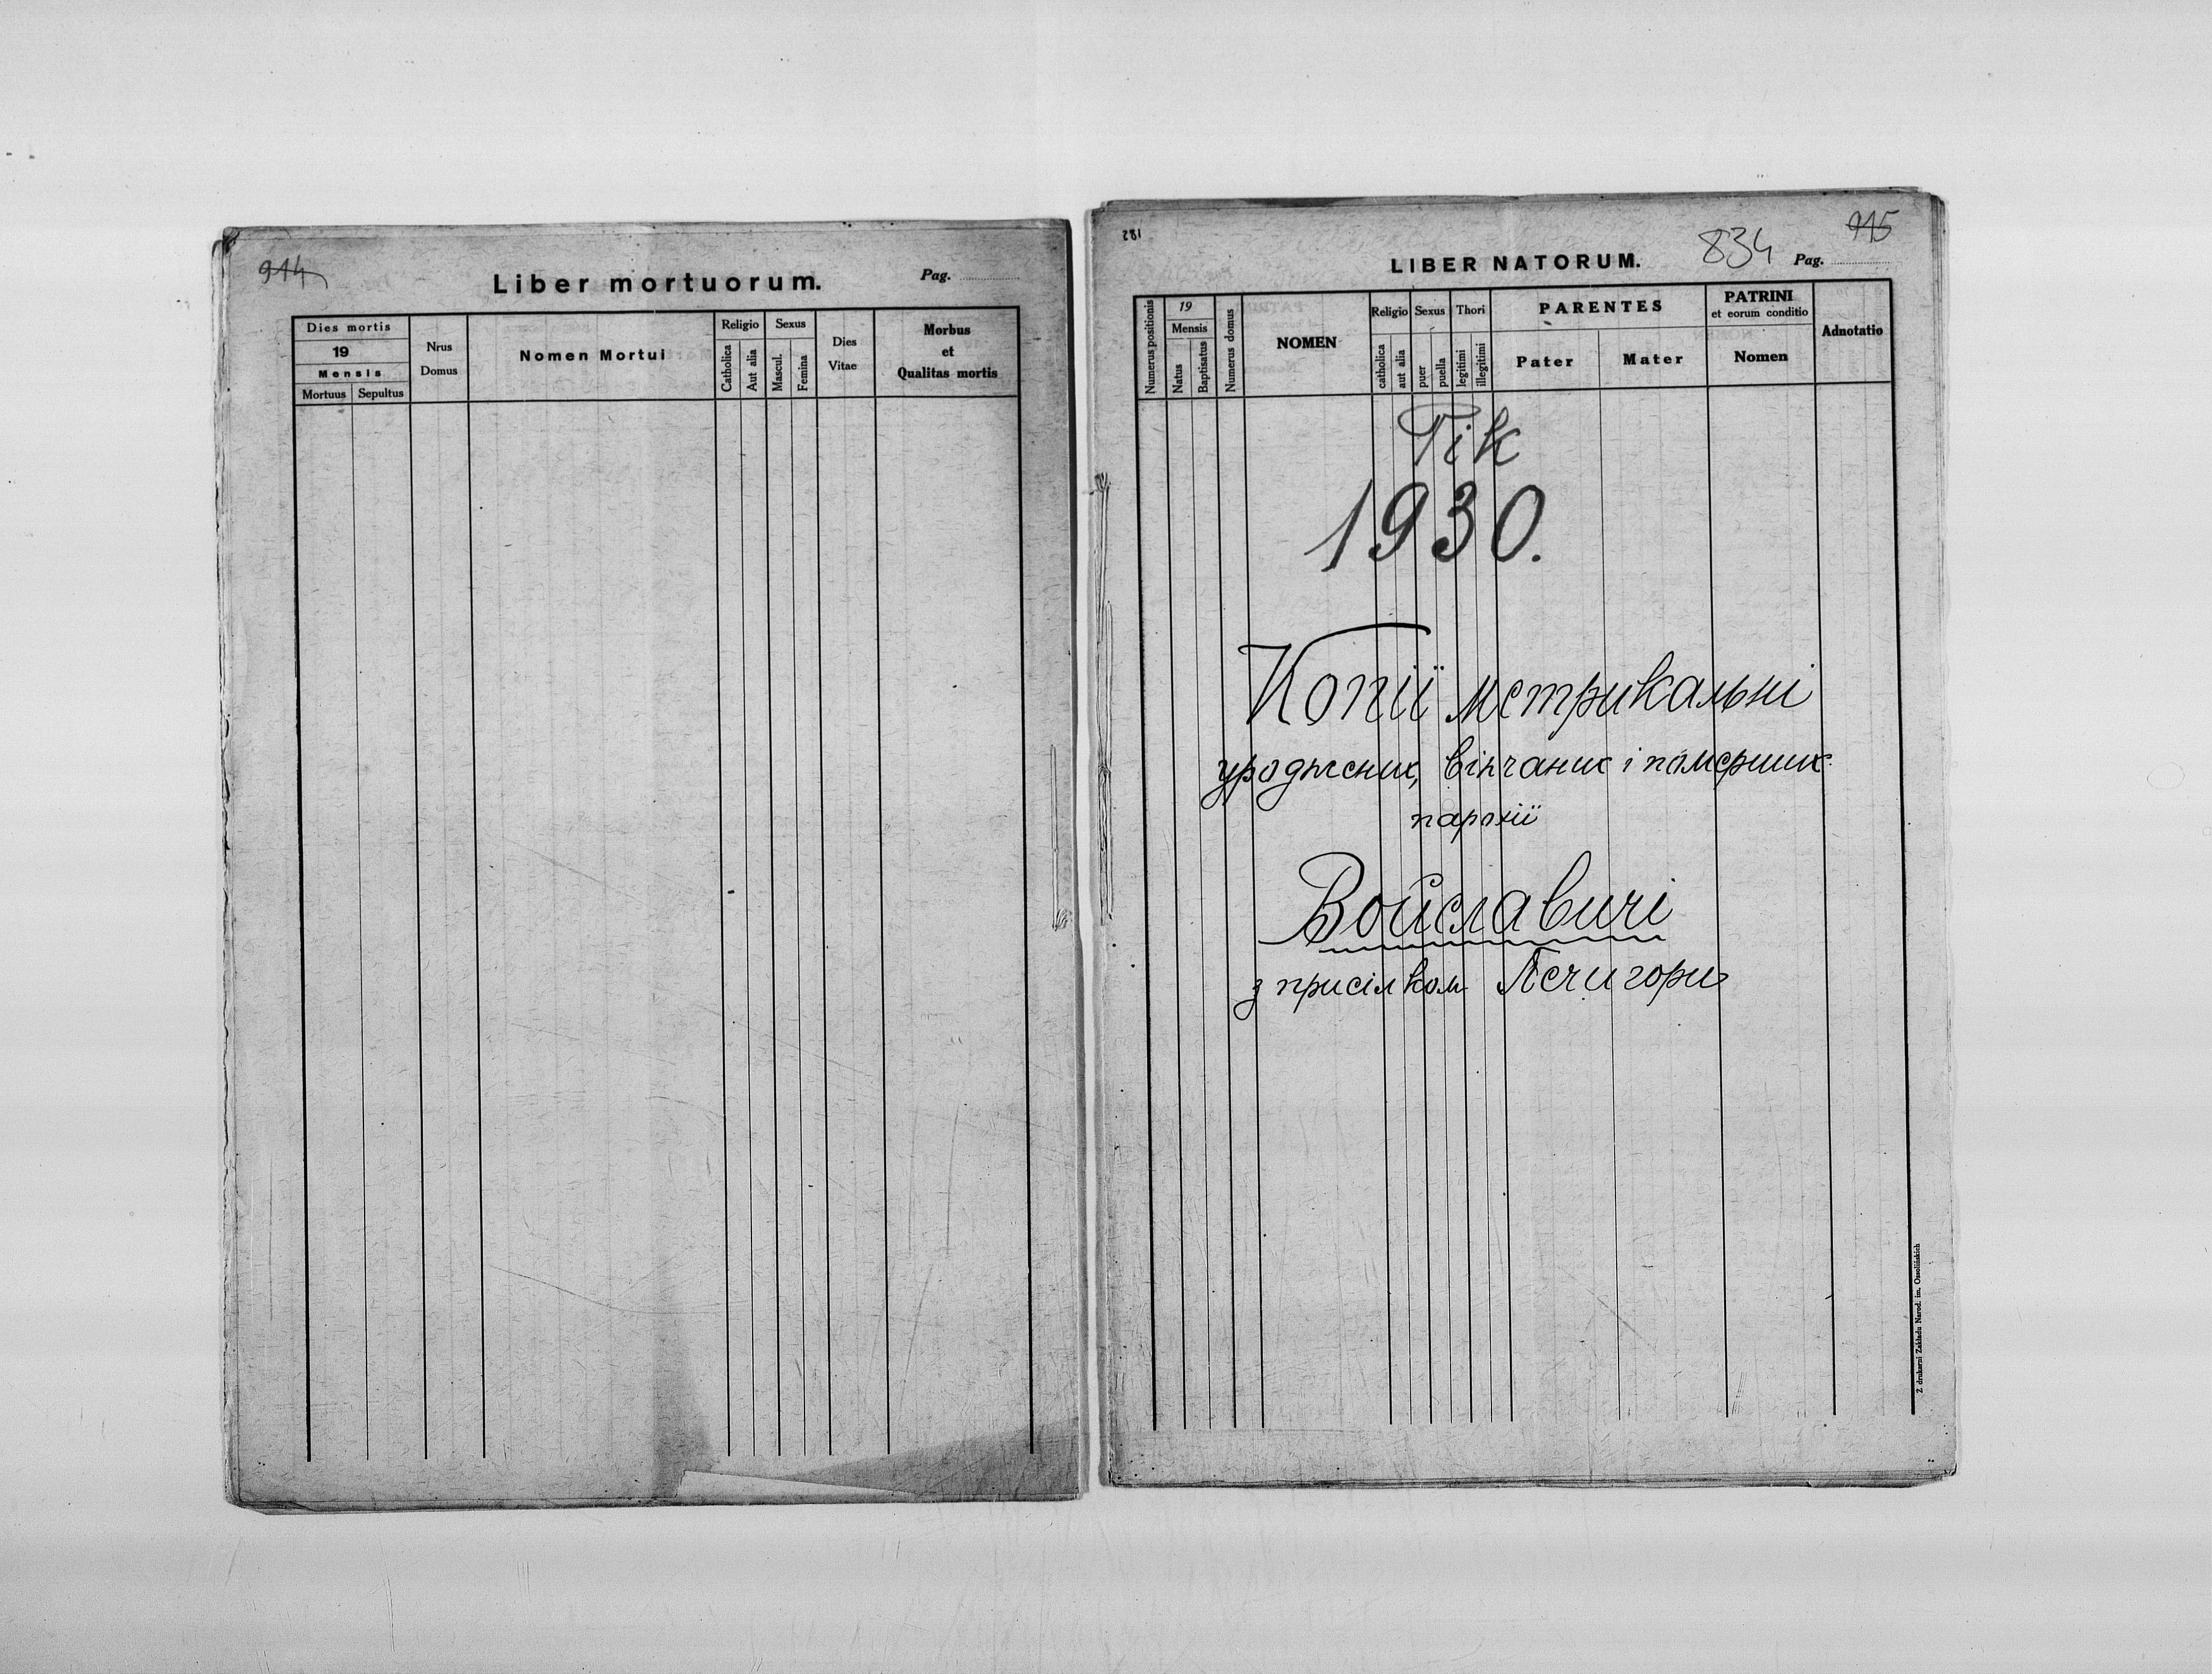 914
Liber mortuorum.
Pag.
Dies mortis
19
Mensis
Mortuus Sepultus
Nrus Domus
Nomen Mortui
Religio
Catholica
Aut alia
Sexus
Mascul.
Femina
Dies Vitae
Morbus
et
Qualitas mortis
182
LIBER NATORUM.
834
Pag.
915
Numerus positionis
19
Mensis
Natus
Baptisatus
Numerus domus
NOMEN
Religio
catholica
aut alia
Sexus
puer
puella
Thori
legitimi
illegitimi
PARENTES
Pater
Mater
PATRINI
et eorum conditio
Nomen
Adnotatio
Рік
1930.
Копії метрикальні
уроджених, вінчаних і померших
парохії
Войславичі
з присілком Печигори
Z drukarni Zakładu Narod. im. Ossolińskich